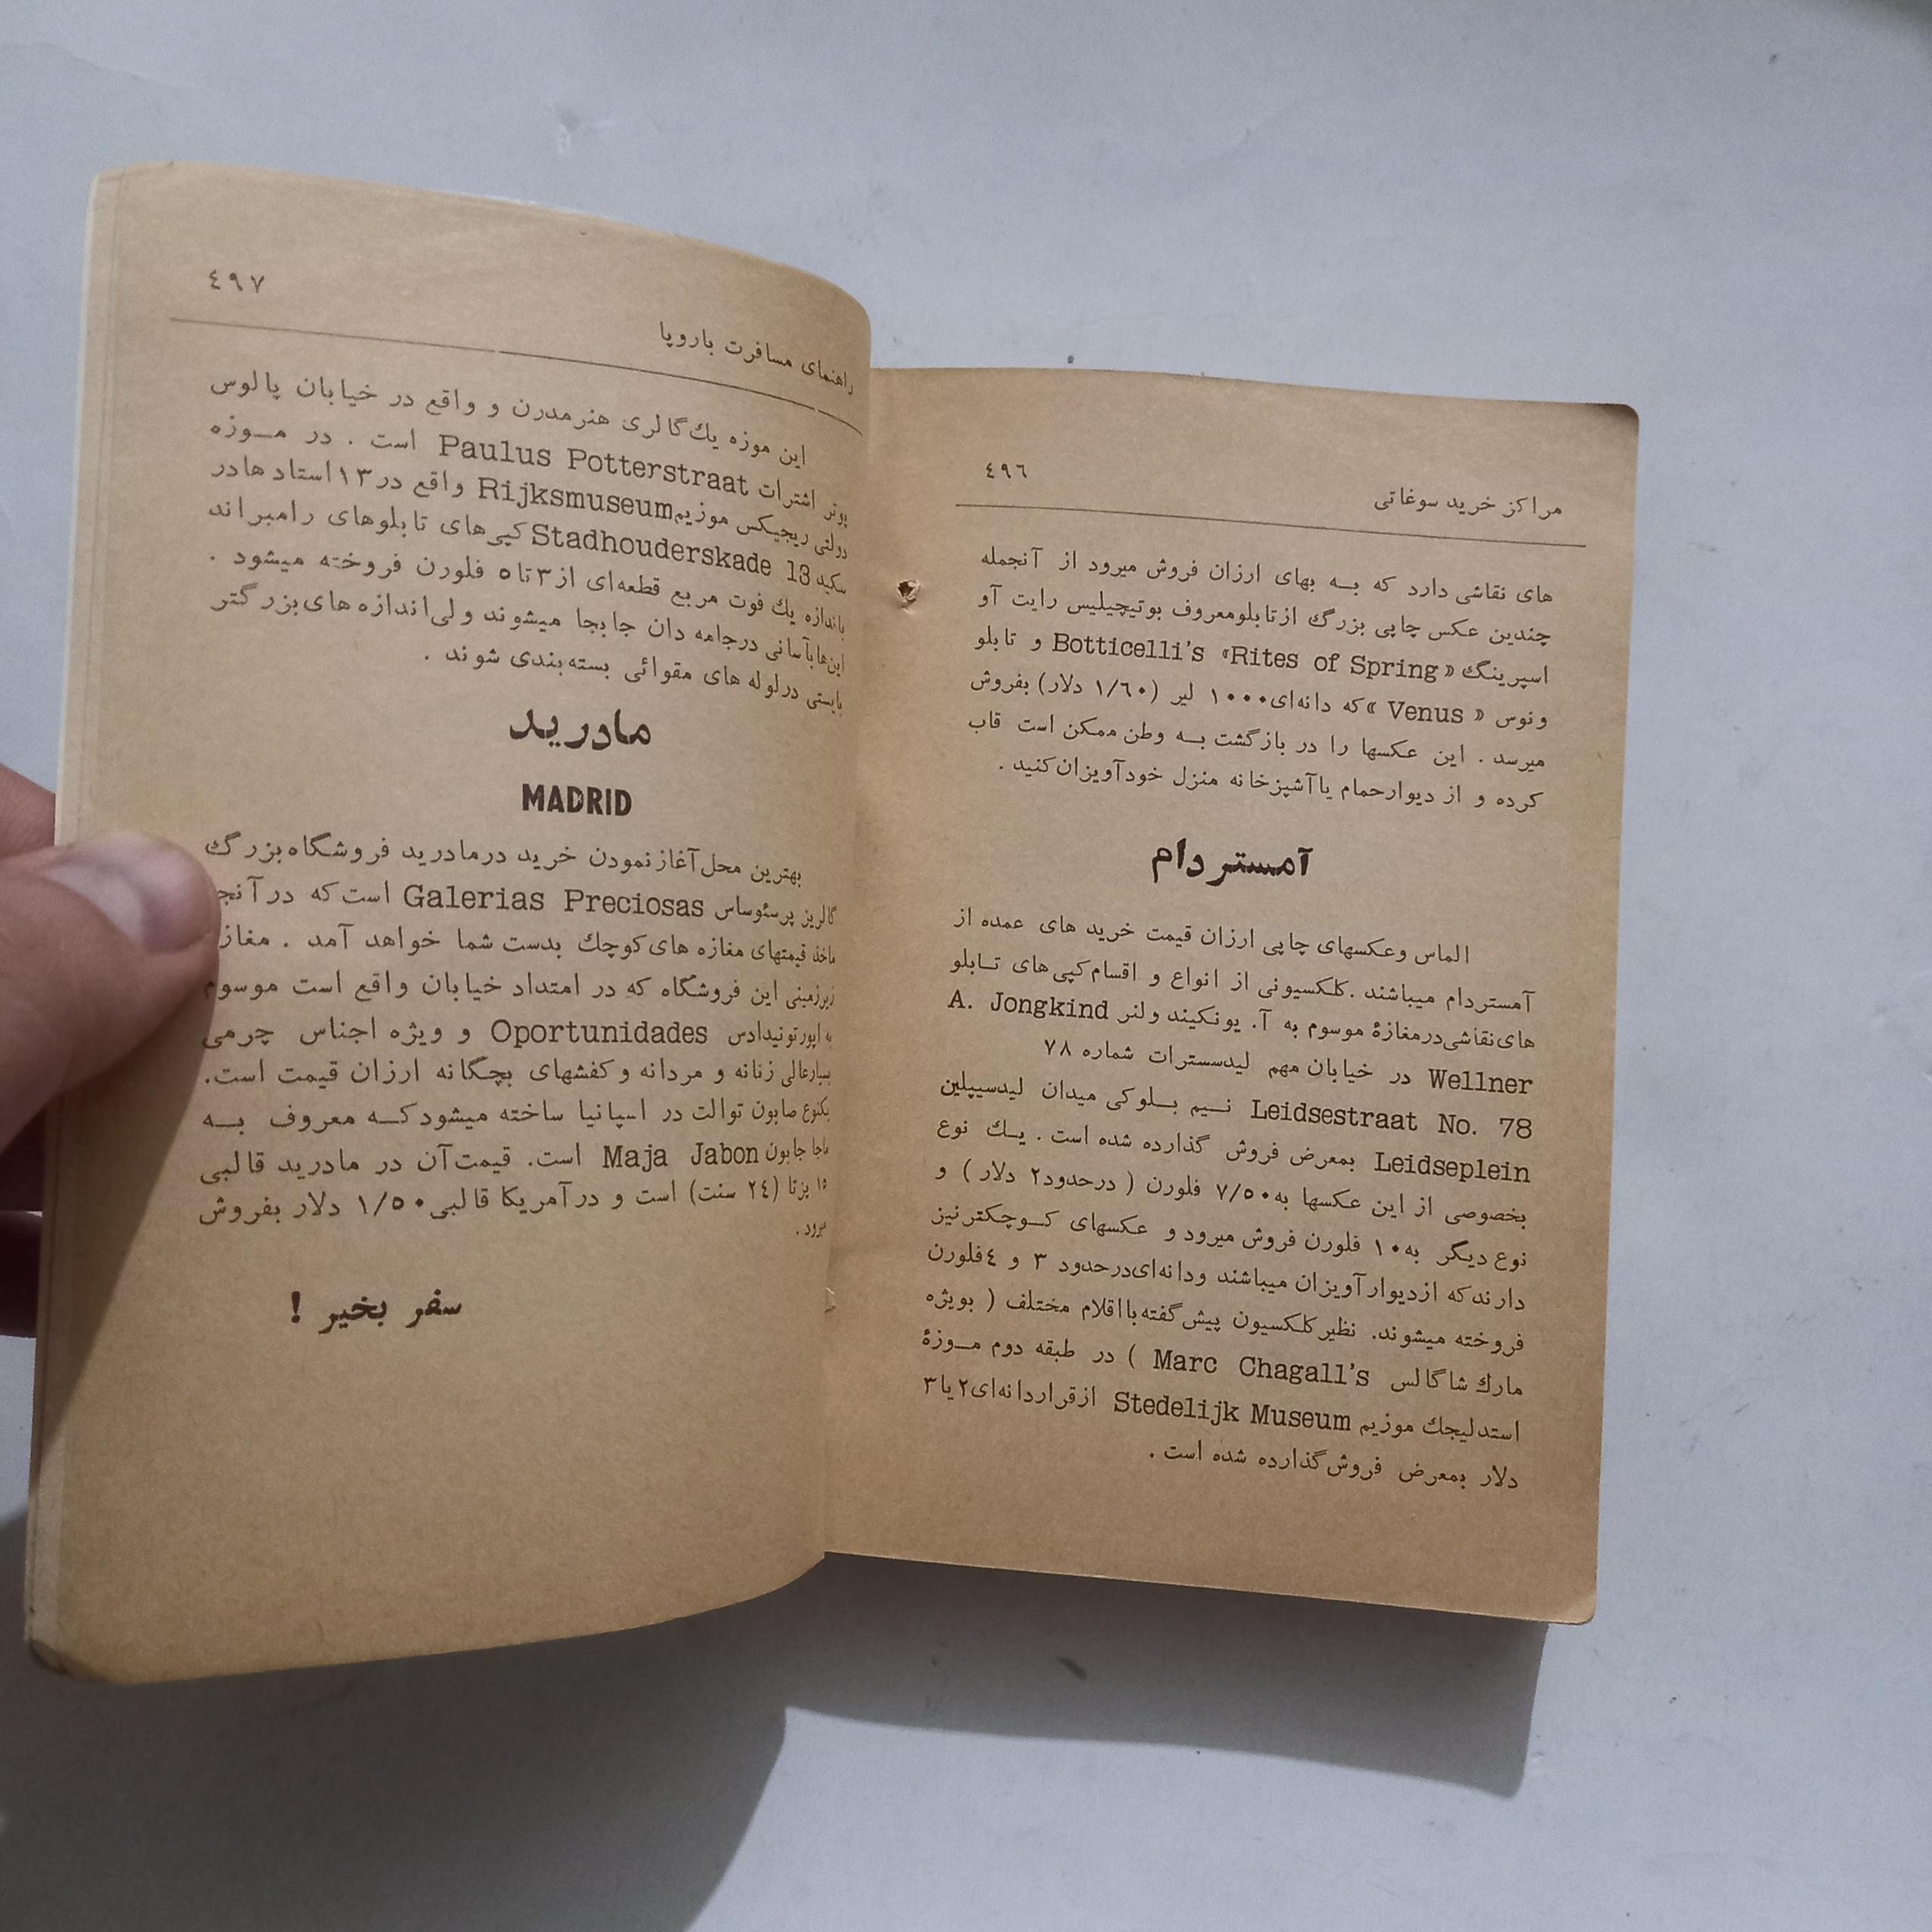 ٤٩٦
مراكز خرید سوغاتی
های نقاشی دارد که بـه بهای ارزان فروش میرود از آنجمله
چندین عکس چاپی بزرگ ازتابلومعروف بوتیچیلیس رایت آو
اسپرینگ «Botticelli's «Rites of Spring و تابلو
ونوس « Venus »که دانه‌ای۱۰۰۰ لیر (۱/٦٠ دلار) بفروش
میرسد . این عکسها را در بازگشت بـه وطن ممکن است قاب
کرده و از دیوارحمام یاآشپزخانه منزل خودآویزان‌کنید .
آمستردام
الماس وعکسهای چاپی ارزان قیمت خرید های عمده از
آمستردام میباشند .کلکسیونی از انواع و اقسام‌کپی‌های تـابلو
های‌نقاشی‌درمغازهٔ موسوم به آ. یونکیند ولنر A. Jongkind
Wellner در خیابان مهم لیدسسترات شماره ۷۸
Leidsestraat No. 78 نـیم بـلوکی میدان لیدسیپلین
Leidseplein بمعرض فروش گذارده شده است . یـك نوع
بخصوصی از این عکسها به۷/۵۰ فلورن ( درحدود۲ دلار ) و
نوع دیگر به۱۰ فلورن فروش میرود و عکسهای کـوچکترنیز
دارندکه ازدیوارآویزان میباشند ودانه‌ای‌درحدود ۳ و ٤فلورن
فروخته میشوند. نظیرکلکسیون پیش‌گفته‌بااقلام مختلف ( بویژه
مارك شاگالس Marc Chagall's ) در طبقه دوم مـوزهٔ
استدلیجك موزیم Stedelijk Museum ازقراردانه‌ای۲یا۳
دلار بمعرض فروش‌گذارده شده است .
٤٩٧
راهنمای مسافرت باروپا
این موزه یك‌گالری هنرمدرن و واقع در خیابان پالوس
پوتر اشترات Paulus Potterstraat است . در مـوزه
دولتی ریجیکس موزیمRijksmuseum واقع در۱۳استاد هادر
سکید Stadhouderskade 13کپی‌های تابلوهای رامبراند
باندازه یك فوت مربع قطعه‌ای از۳تا۵ فلورن فروخته میشود .
این‌هابآسانی درجامه دان جابجا میشوند ولی‌اندازه های‌بزرگتر
بایستی درلوله های مقوائی بسته‌بندی شوند .
مادرید
MADRID
بهترین محل‌آغازنمودن خرید درمادرید فروشگاه‌بزرگ
گالریز پرسئوساس Galerias Preciosas است‌که درآنج
ماخذ قیمتهای مغازه های‌کوچك بدست شما خواهد آمد . مغاز
زیرزمینی این فروشگاه که در امتداد خیابان واقع است موسوم
به اپورتونیدادس Oportunidades و ویژه اجناس چرمی
بسیارعالی زنانه و مردانه وکفشهای بچگانه ارزان قیمت است.
یکنوع صابون توالت در اسپانیا ساخته میشودکـه معروف بـه
ماجا جابون Maja Jabon است. قیمت‌آن در مادرید قالبی
۱۵ پزتا (۲٤ سنت) است و درآمریکا قالبی۱/۵۰ دلار بفروش
میرود .
سفر بخیر !